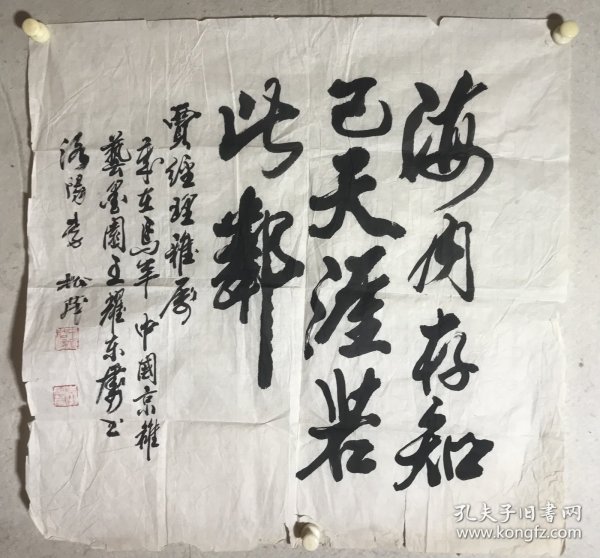 海内存知
己天涯若
比鄰
賈經理雅屬
歲在馬年中國京雅
藝墨園王耀东書于
洛陽李松
孔夫子旧書网
www.kongfz.com